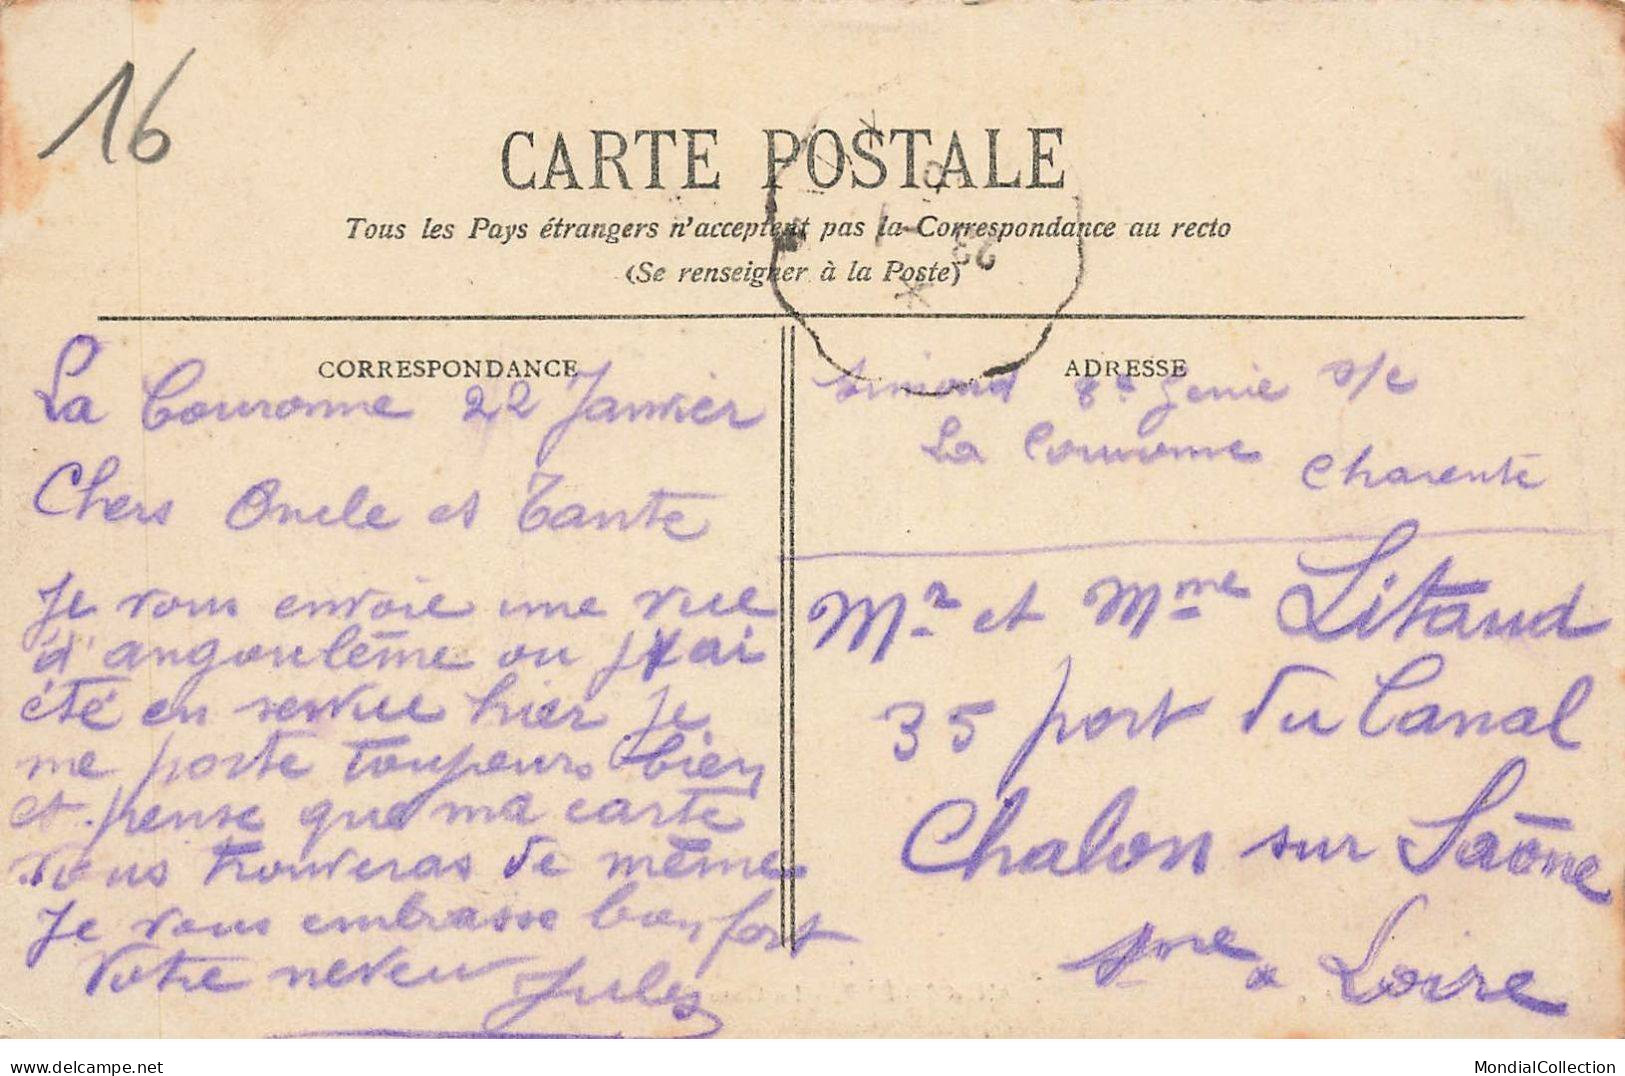 16
CARTE POSTALE
Tous les Pays étrangers n'acceptent pas la Correspondance au recto
(Se renseigner à la Poste)
23
CORRESPONDANCE
La Couronne 22 Janvier
Chers Oncle et Tante
Je vous envoie une vue
d'angoulême ou j'ai
été en service hier Je
me porte toujours bien
et pense que ma carte
vous trouveras de même
Je vous embrasse bien fort
Votre neveu Jules
ADRESSE
8e Génie D/C
La Couronne Charente
Mr et Mme Litaud
35 port du Canal
Chalon sur Saône
Sne & Loire
delcampe.net
MondialCollection